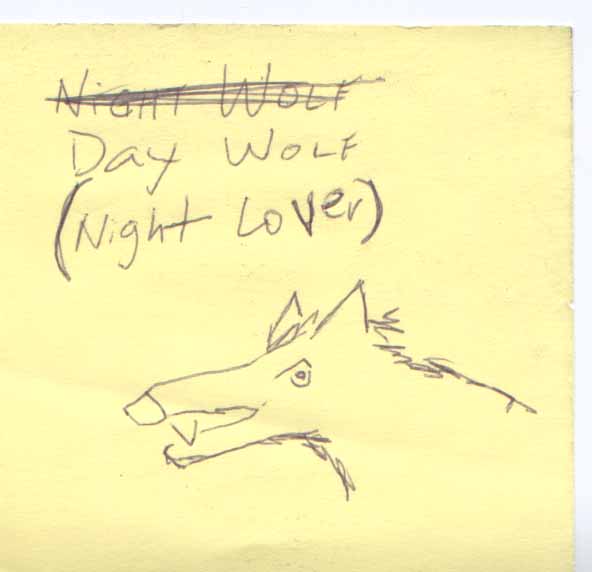 Night Wolf
Day Wolf
(Night Lover)